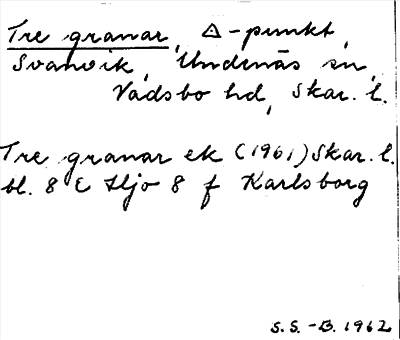 Tre granar, △-punkt,
Svanvik, Undenäs sn,
Vadsbo hd, Skar. l.
Tre granar ek (1961) Skar. l.
bl. 8 E Hjo 8 f Karlsborg
S.S.-B. 1962